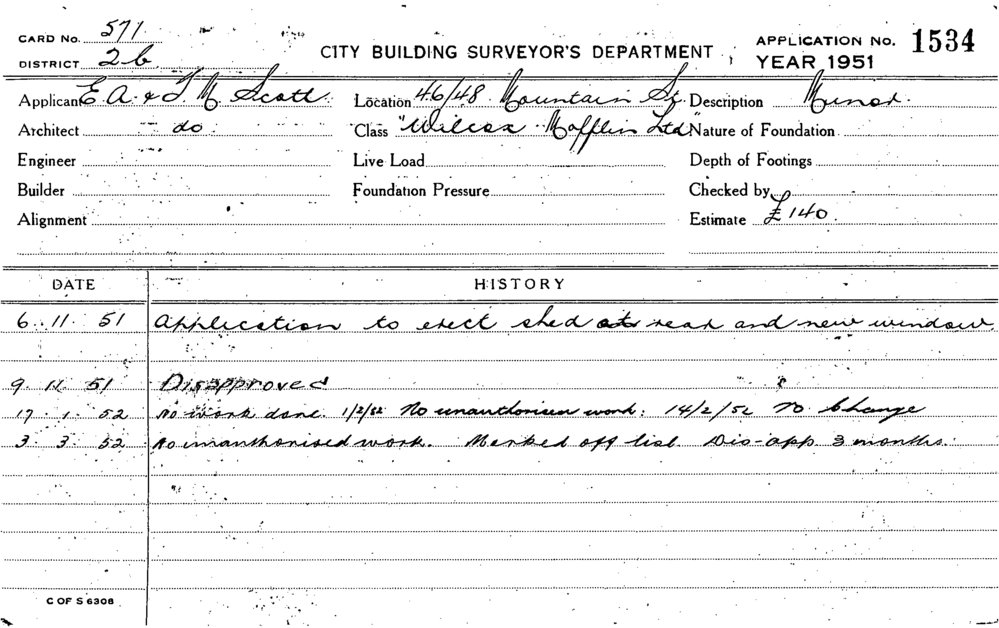 CARD No. 571
DISTRICT 2b
CITY BUILDING SURVEYOR'S DEPARTMENT
APPLICATION No. 1534
YEAR 1951
Applicant E. A. & T. M. Scott Location 46/48 Mountain St. Description Minor.
Architect do Class "Wilcox Mofflin Ltd" Nature of Foundation
Engineer Live Load Depth of Footings
Builder Foundation Pressure Checked by
Alignment Estimate £140.
DATE HISTORY
6. 11. 51 Application to erect shed at rear and new window.
9. 11. 51 Disapproved
17. 1. 52 No work done. 1/2/52 No unauthorised work: 14/2/52 No Change
3. 3. 52 No unauthorised work. Marked off list. Dis-app. 3 months.
C OF S 6308